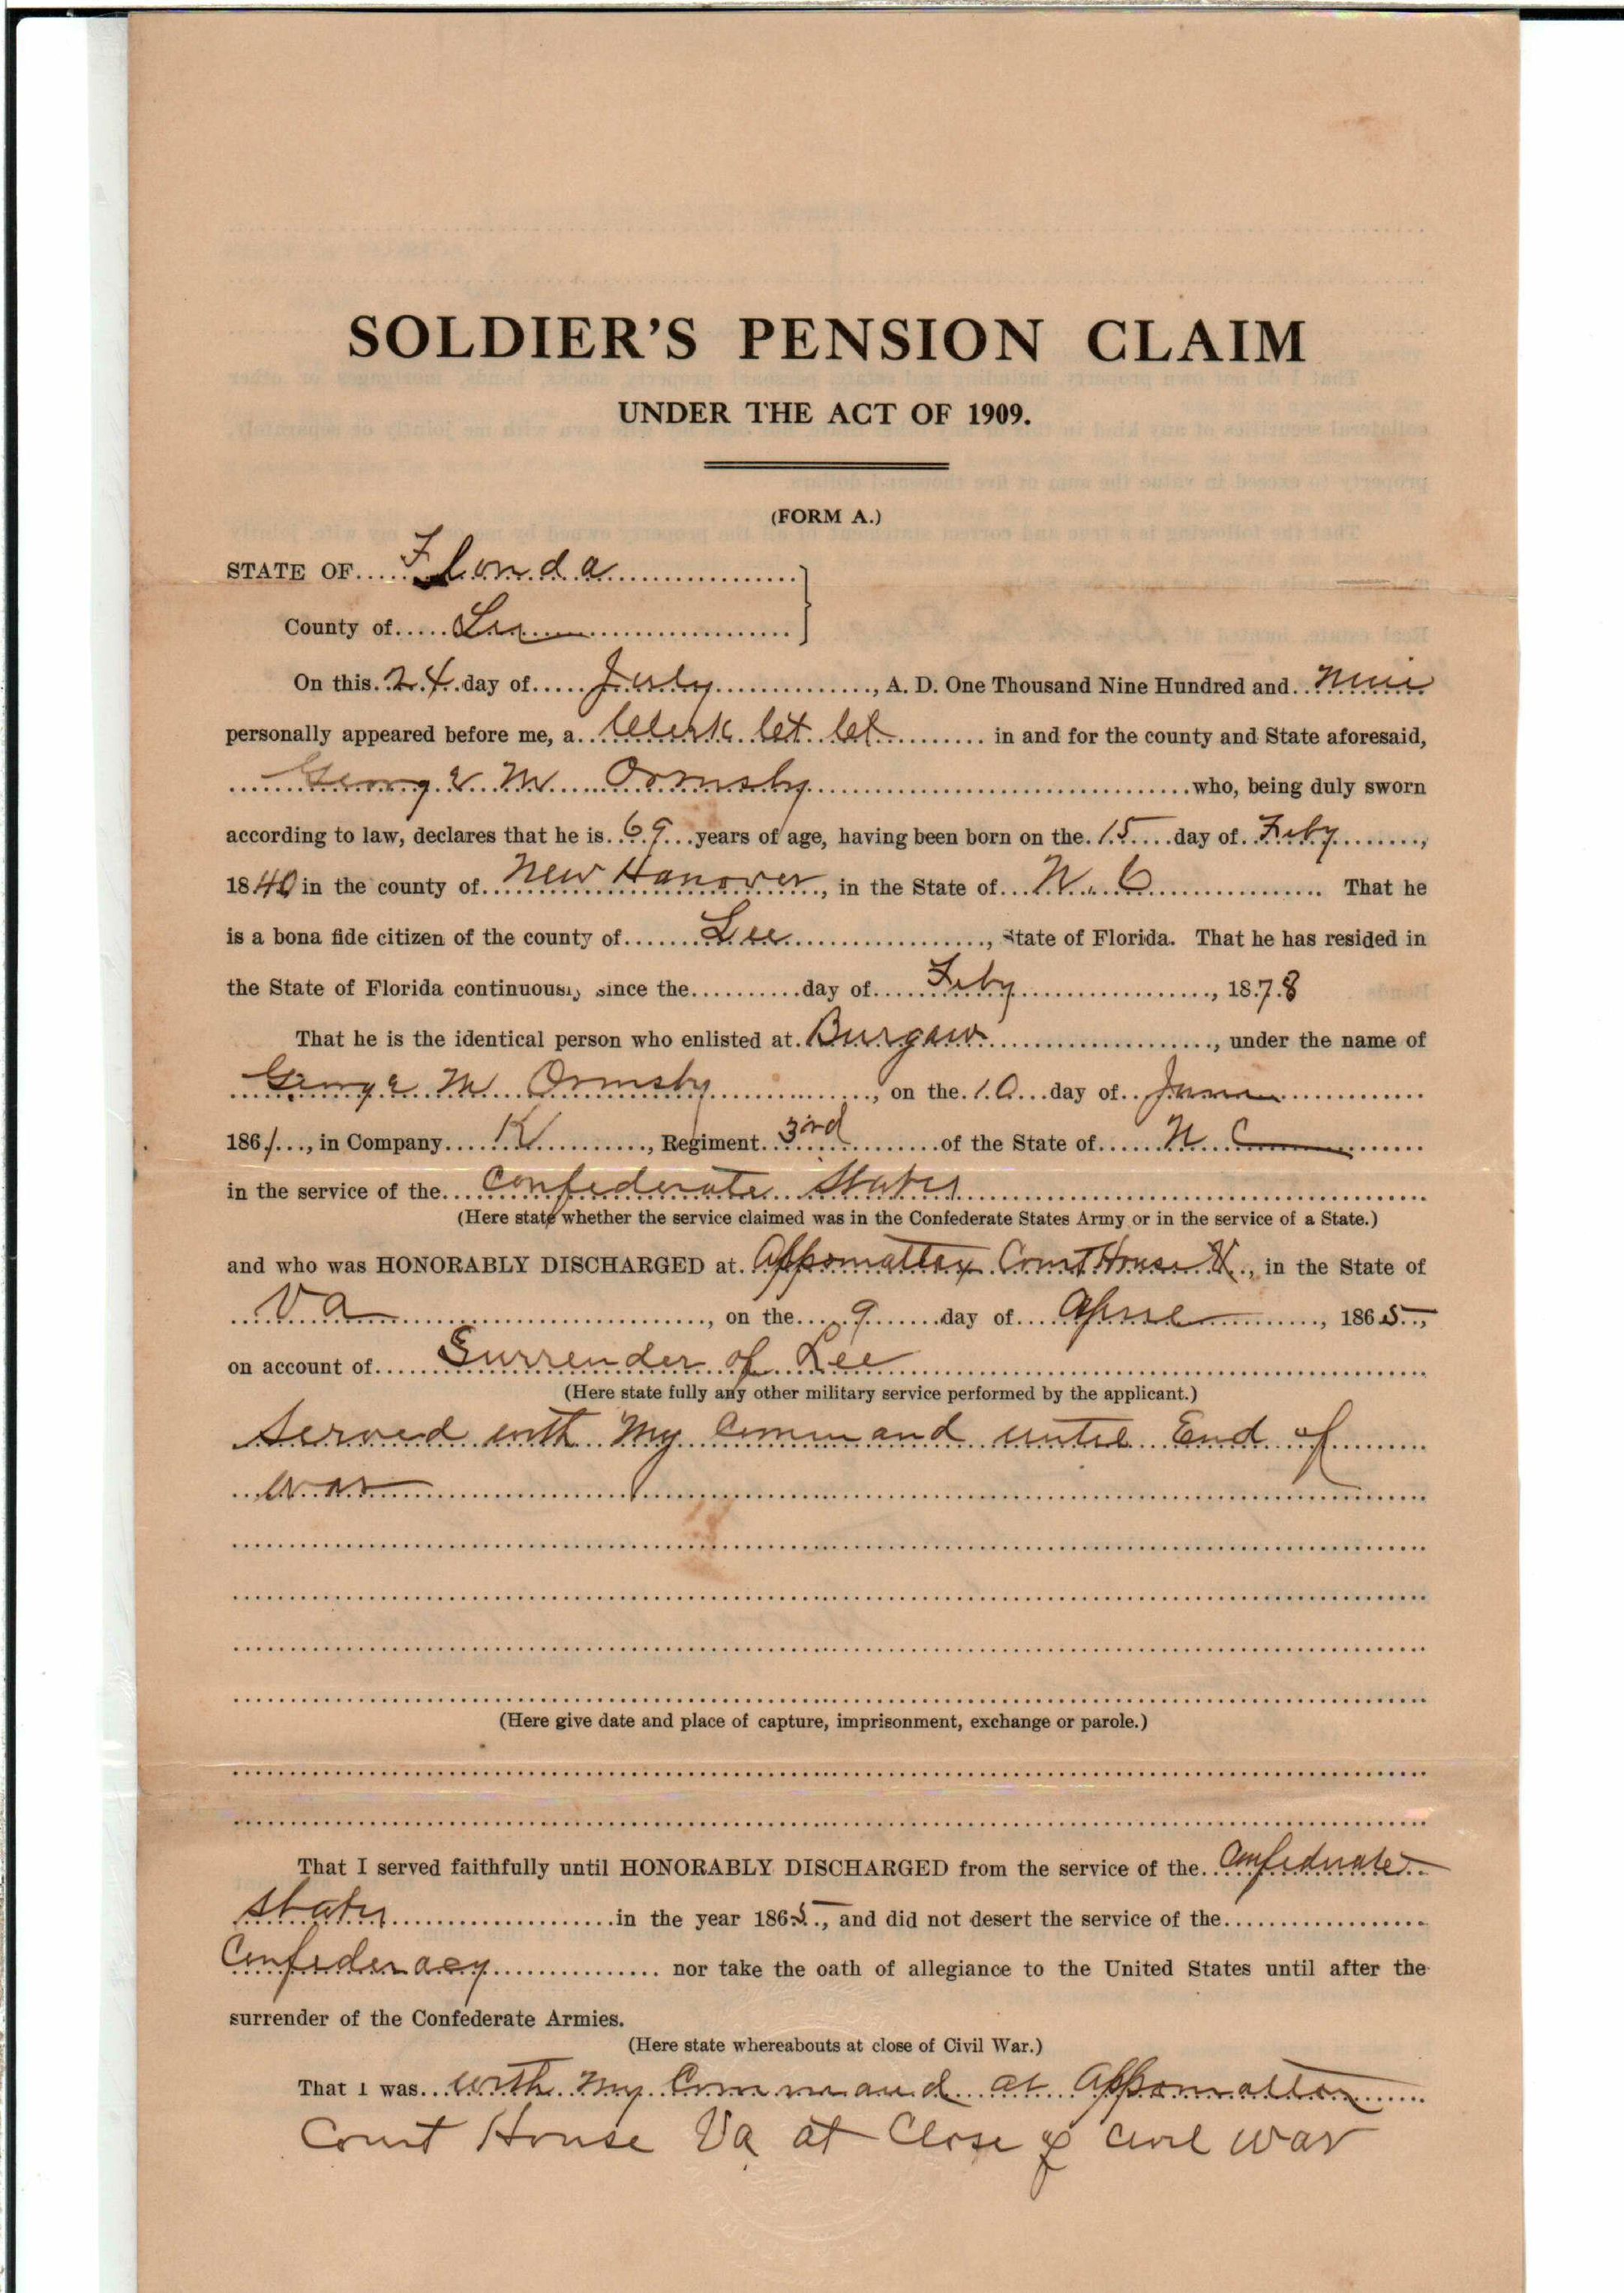 SOLDIER'S PENSION CLAIM
UNDER THE ACT OF 1909.
(FORM A.)
STATE OF Florida
County of Lee
On this 24 day of July, A. D. One Thousand Nine Hundred and Nine
personally appeared before me, a Clerk Cct Cct in and for the county and State aforesaid,
George M Ormsby who, being duly sworn
according to law, declares that he is 69 years of age, having been born on the 15 day of Feby,
1840 in the county of New Hanover, in the State of N. C. That he
is a bona fide citizen of the county of Lee, State of Florida. That he has resided in
the State of Florida continuously since the day of Feby, 1878
That he is the identical person who enlisted at Burgaw, under the name of
George M Ormsby, on the 10 day of June
1861, in Company K, Regiment 3rd of the State of N. C
in the service of the Confederate States
(Here state whether the service claimed was in the Confederate States Army or in the service of a State.)
and who was HONORABLY DISCHARGED at Appomattox Court House, in the State of
Va, on the 9 day of April, 1865,
on account of Surrender of Lee
(Here state fully any other military service performed by the applicant.)
Served with My Command until End of
war
(Here give date and place of capture, imprisonment, exchange or parole.)
That I served faithfully until HONORABLY DISCHARGED from the service of the Confederate
States in the year 1865, and did not desert the service of the
Confederacy nor take the oath of allegiance to the United States until after the
surrender of the Confederate Armies.
(Here state whereabouts at close of Civil War.)
That I was with My Command at Appomattox
Court House Va at Close of Civil War